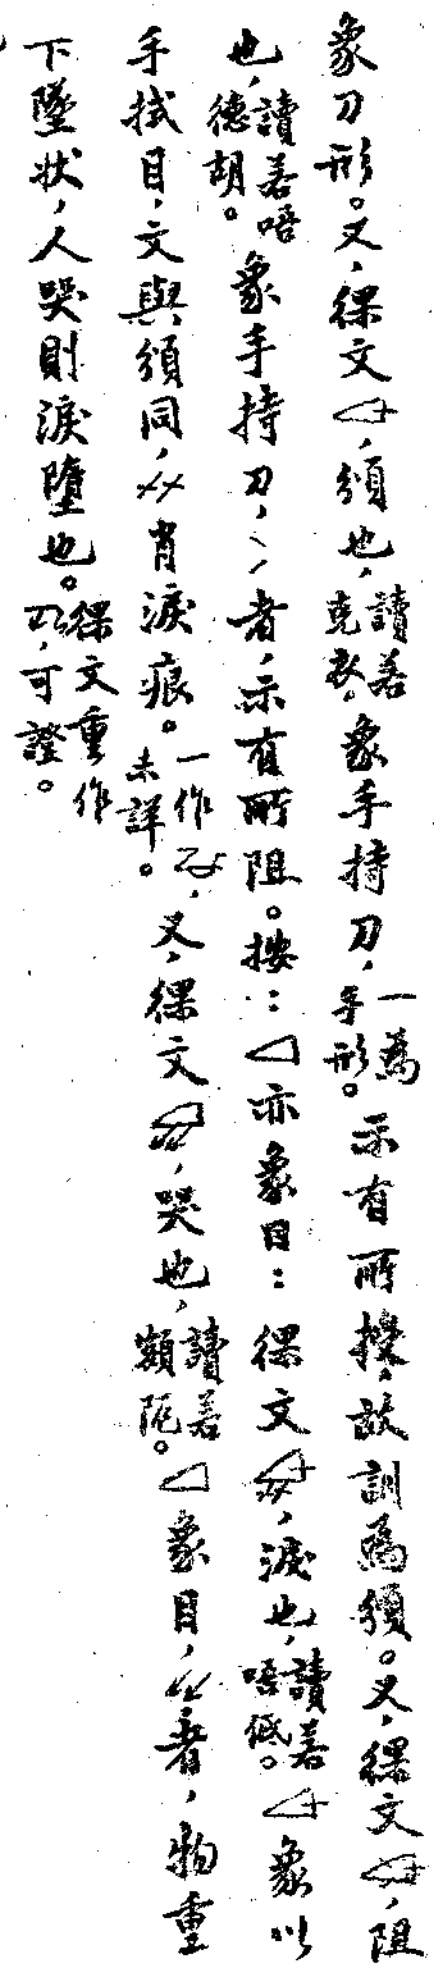 象刀形。又，倮文，須也，讀若克衣，象手持刀，一為手形。示有所撥，故訓為須。又，倮文，阻
也，讀若唔德胡。象手持刀，者，示有所阻。按：亦象目：倮文，淚也，讀若唔低。象以
手拭目，文與須同，肖淚痕。一作，未詳。又，倮文，哭也，讀若額阨。象目，者，物重
下墜狀，人哭則淚墮也。倮文重作，可證。